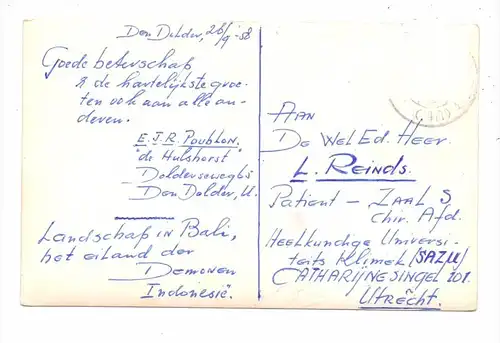 Den Dolder, 26/9-58
Goede beterschap
& de hartelijkste groe-
ten ook aan alle an-
deren.
E.J.R. Poublon.
"de Hulshorst
Dolderseweg
Den Dolder, U.
Landschap in Bali,
het eiland der
Demonen
Indonesië.
Aan
De Wel Ed. Heer
L. Reinds.
Patient – Zaal S
Chir. Afd.
Heelkundige Universi-
teits Kliniek (SAZU)
Catharijnesingel 101.
Utrecht.